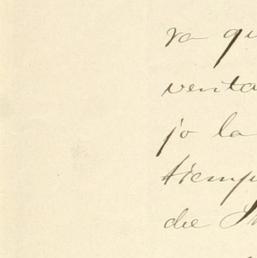 ra qu
venta
jo la
tiemp
de